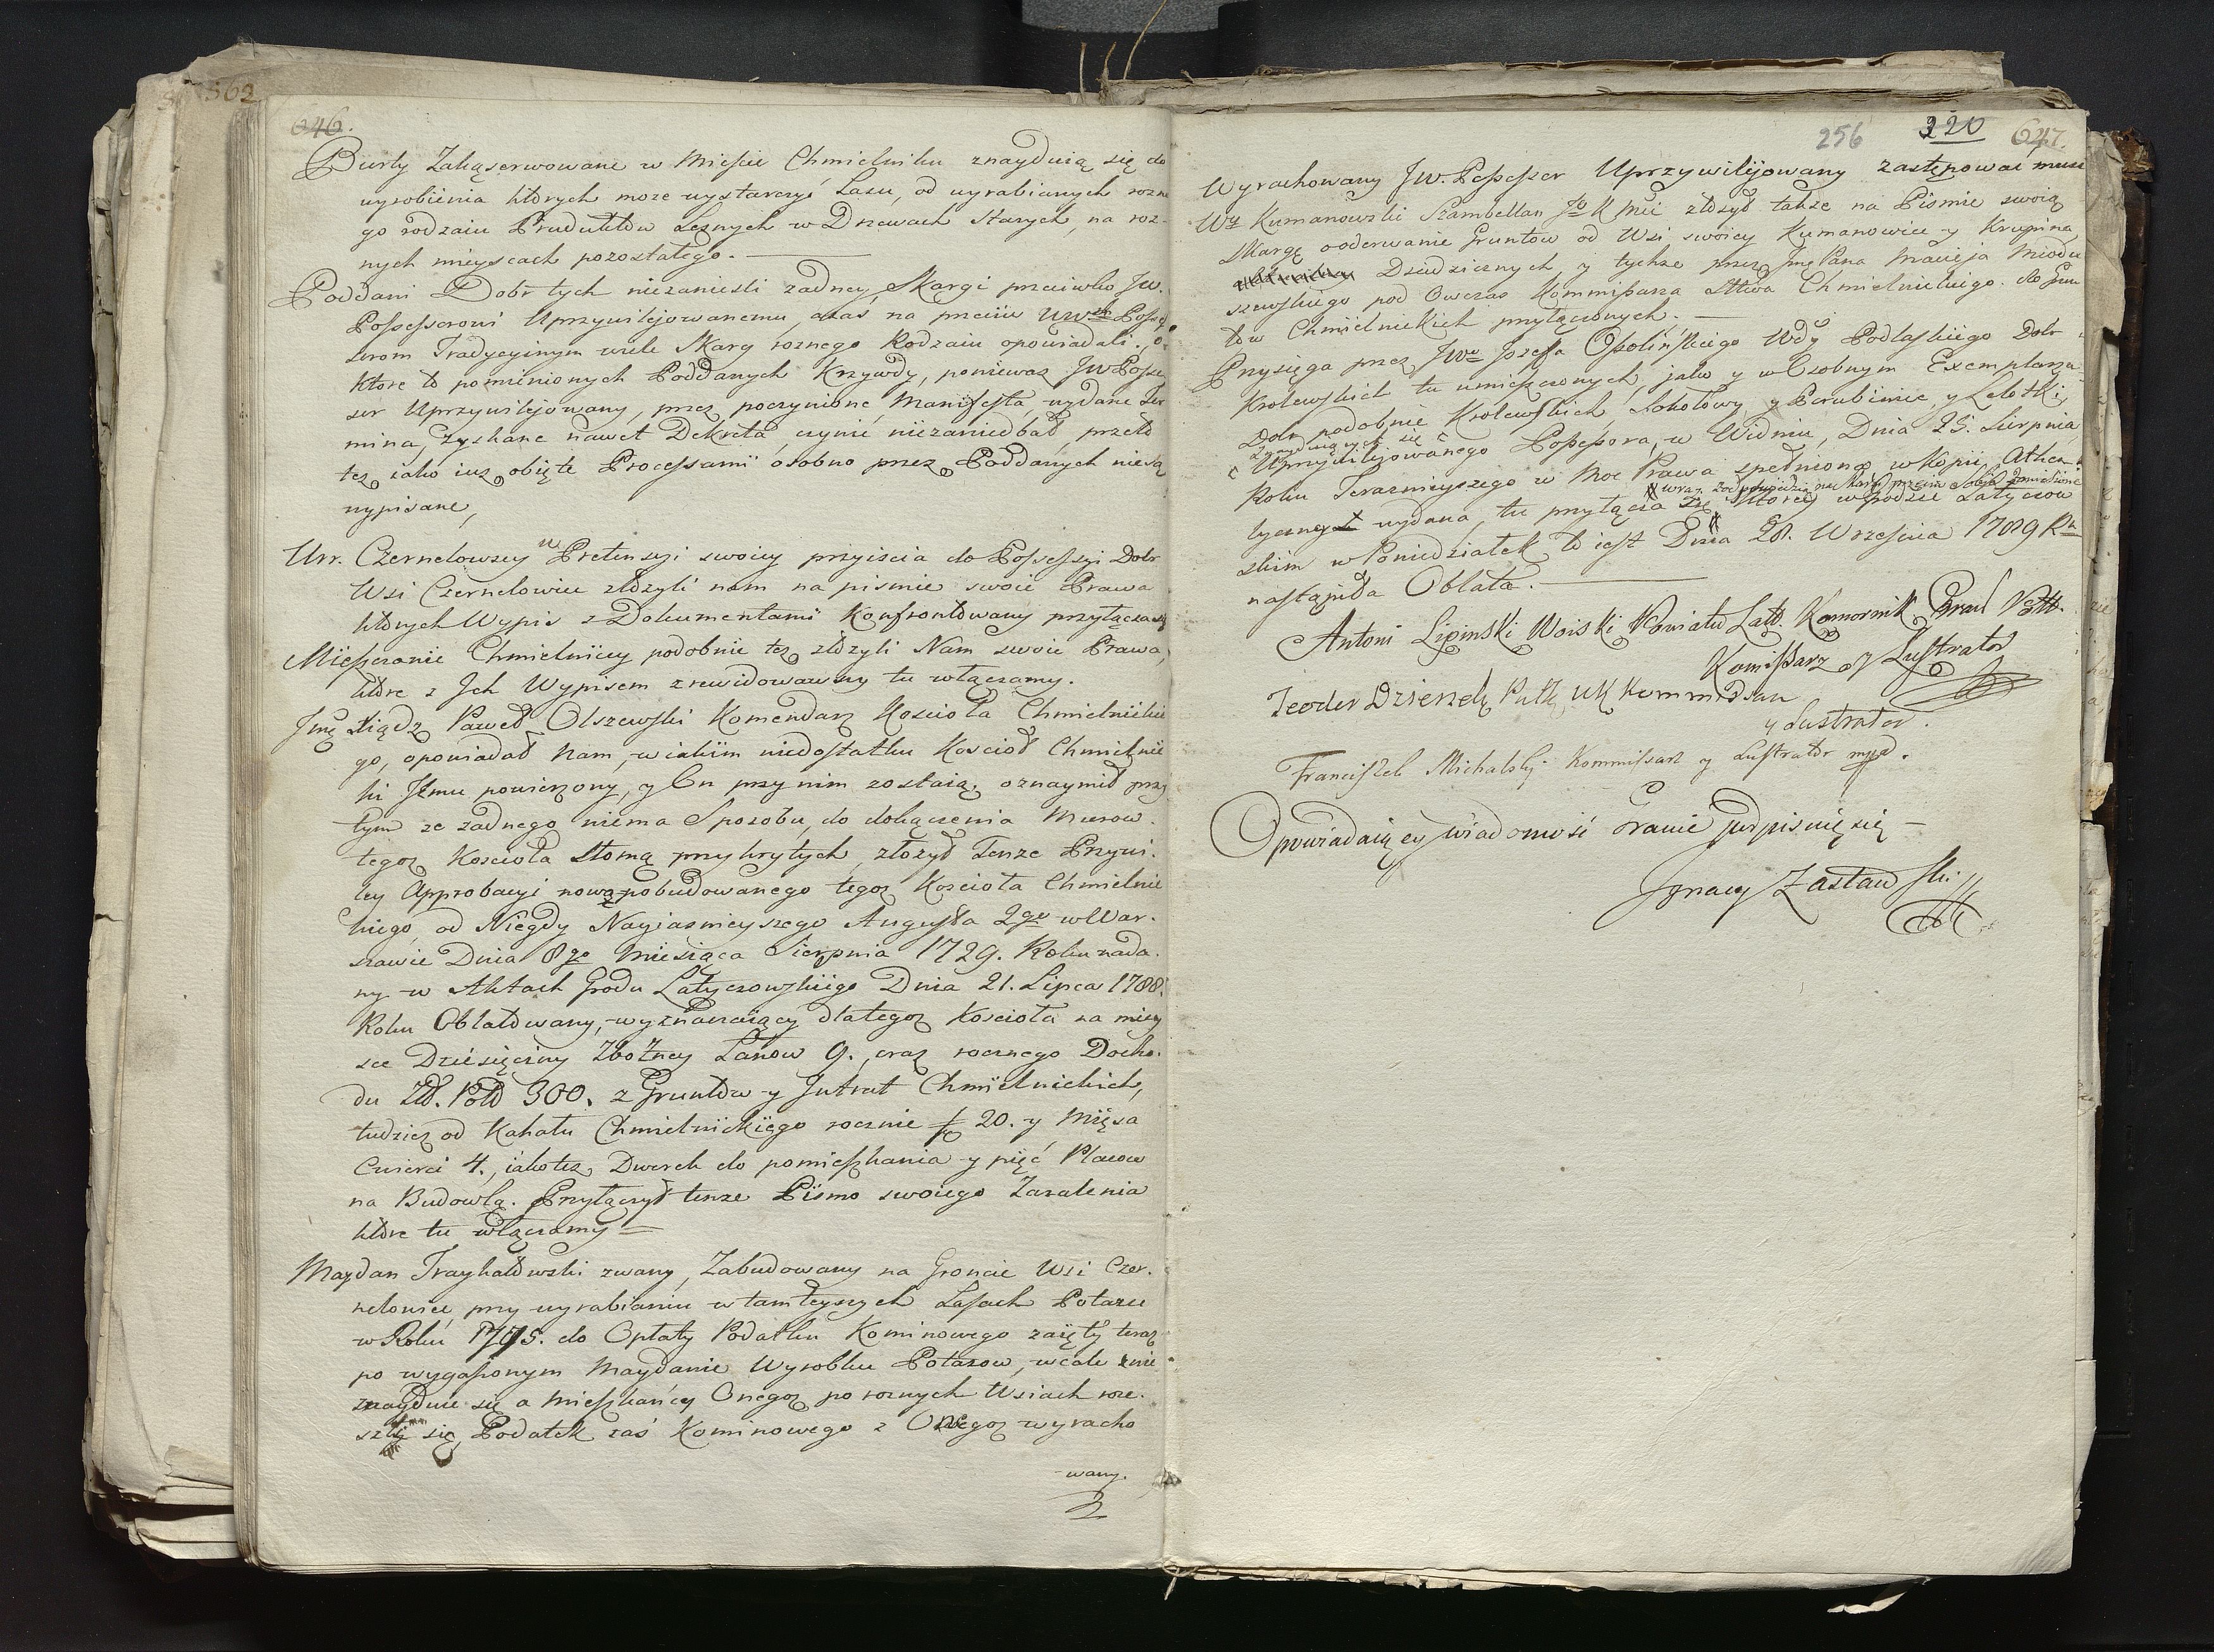 562
646.
Burty Zakąserwowane w Mieście Chmielniku znayduią się do
wyrobienia których moze wystarczyć Lasu, od wyrabianych rozne
go rodzaiu Produktów Leśnych w Drzewach Starych, na roz-
nych mieyscach pozostałego.
Poddani Dobr tych niezanieśli zadney Skargi przeciwko Jw.
Possessorowi Uprzywilejowanemu, a zaś na przeciw Possę
ssorom Tradycyinym wiele Skarg roznego Rodzaiu opowiadali, o
które to pomienionych Poddanych Krzywdy, poniewaz JwPosse
ssor Uprzywilejowany, przez poczynione Manifesta, wydane Ter
mina, zyskane nawet Dekreta, czynić niezaniedbał, przeto
tez iako iuz obięte Processami osobno przez Poddanych nie są
wypisane,
Urr. Czernelowscy w Pretensyi swoiey przyiścia do Possessyi Dobr
Wsi Czernelowiec złozyli nam na pismie swoie Prawa
których Wypis z Dokumentami Konfrontowany przyłącza się
Mieszczanie Chmielniccy podobnie tez złozyli Nam swoie Prawa,
które z Jch Wypisem zrewidowawszy tu włączamy.
Jmę Xiądz Paweł Olszewski Komendarz Kościoła Chmielnickie
go, opowiadał Nam, w iakim niedostatku Kościoł Chmielnic
ki Jemu powierzony, y On przy nim zostaią, oznaymił przy
tym ze zadnego niema Sposobu, do dokączenia Murow
tegoz Kościoła Słomą przykrytych, złożył Tenze Przywi-
ley Approbacyi nowo pobudowanego tegoz Kościoła Chmielnic
kiego, od Niegdy Nayiaśnieyszego Augusta 2go w War-
szawie Dnia 8go Miesiąca Sierpnia 1729. Roku nada-
ny w Aktach Grodu Latyczowskiego Dnia 21. Lipca 1788.
Roku Oblatowany, wyznaczaiący dla tegoz Kościoła na miey
sce Dziesięciny Zbożney Łanow 9., oraz rocznego Docho-
du Zł. Pol 300. z Gruntów y Jntrat Chmielnickich,
tudziez od Kahału Chmielnickiego rocznie 20. y Mięsa
Cwierci 4., iakotez Dworek do pomieszkania y pięć Placow
na Budowlą. Przyłączył tenze Pismo swoiego Zazalenia
które tu włączamy
Maydan Trayhatowski zwany, Zabudowany na Groncie Wsi Czer-
nelowiec przy wyrabianiu w tamteyszych Lasach Potazu
w Roku 1775. do Opłaty Podatku Kominowego zaięty teraz
po wygasłonym Maydanie Wyrobku Potazow, wcale nie
znayduie się a Mieszkańcy Onegoz po roznych Wsiach roze-
szli się, Podatek zaś Kominowego z Onegoz wyracho
wany.
256 320 647.
Wyrachowany Jw. Possessor Uprzywilijowany zastępować musi
Wy Kumanowski Szambellan J K Mci złozył także na Piśmie swoią
Skargę o oderwanie Gruntow od Wsi swoiey Kumanowiec y Krupina
Dziedzicznych y tychze przez Jmę Pana Macieja Miodu
szewskiego pod Owczas Kommissarza Sttwa Chmielnickiego do Grun
tow Chmielnickich przyłączonych.
Przysięga przez Jwo Jozefa Ossolińskiego Wdy Podlaskiego Dobr
Krolewskich tu umieszczonych, jako y w Osobnym Exemplarza
Dobr podobnie Krolewskich, Sokołowy y Porubinie, y Lelotki,
znayduiących się
Uprzywilejowanego Possessora, w Widniu, Dnia 25. Sierpnia
Roku Teraznieyszego w Moc Prawa spełniona w Kopii Athen-
wraz z odpowiedzią na Skargi przeciw Sobie zanieśione
tyczney wydana, tu przyłącza się, Ktorey w Grodzie Latyczow
skim w Poniedziałek to iest Dnia 28. Września 1789 Ru
nastąpiła Oblata.
Antoni Lipinski Woiski Powiatu Lat. Komornik Gral Ptt.
Komissarz y Lustrator
Teodor Dzierzek Putk, UK Kommissarz
y Lustrator.
Franciszek Michalski Kommissarz y Lustrator mpd.
Opowiadaiący wiadomość oranie podpisuię się
Jgnacy Zastawski